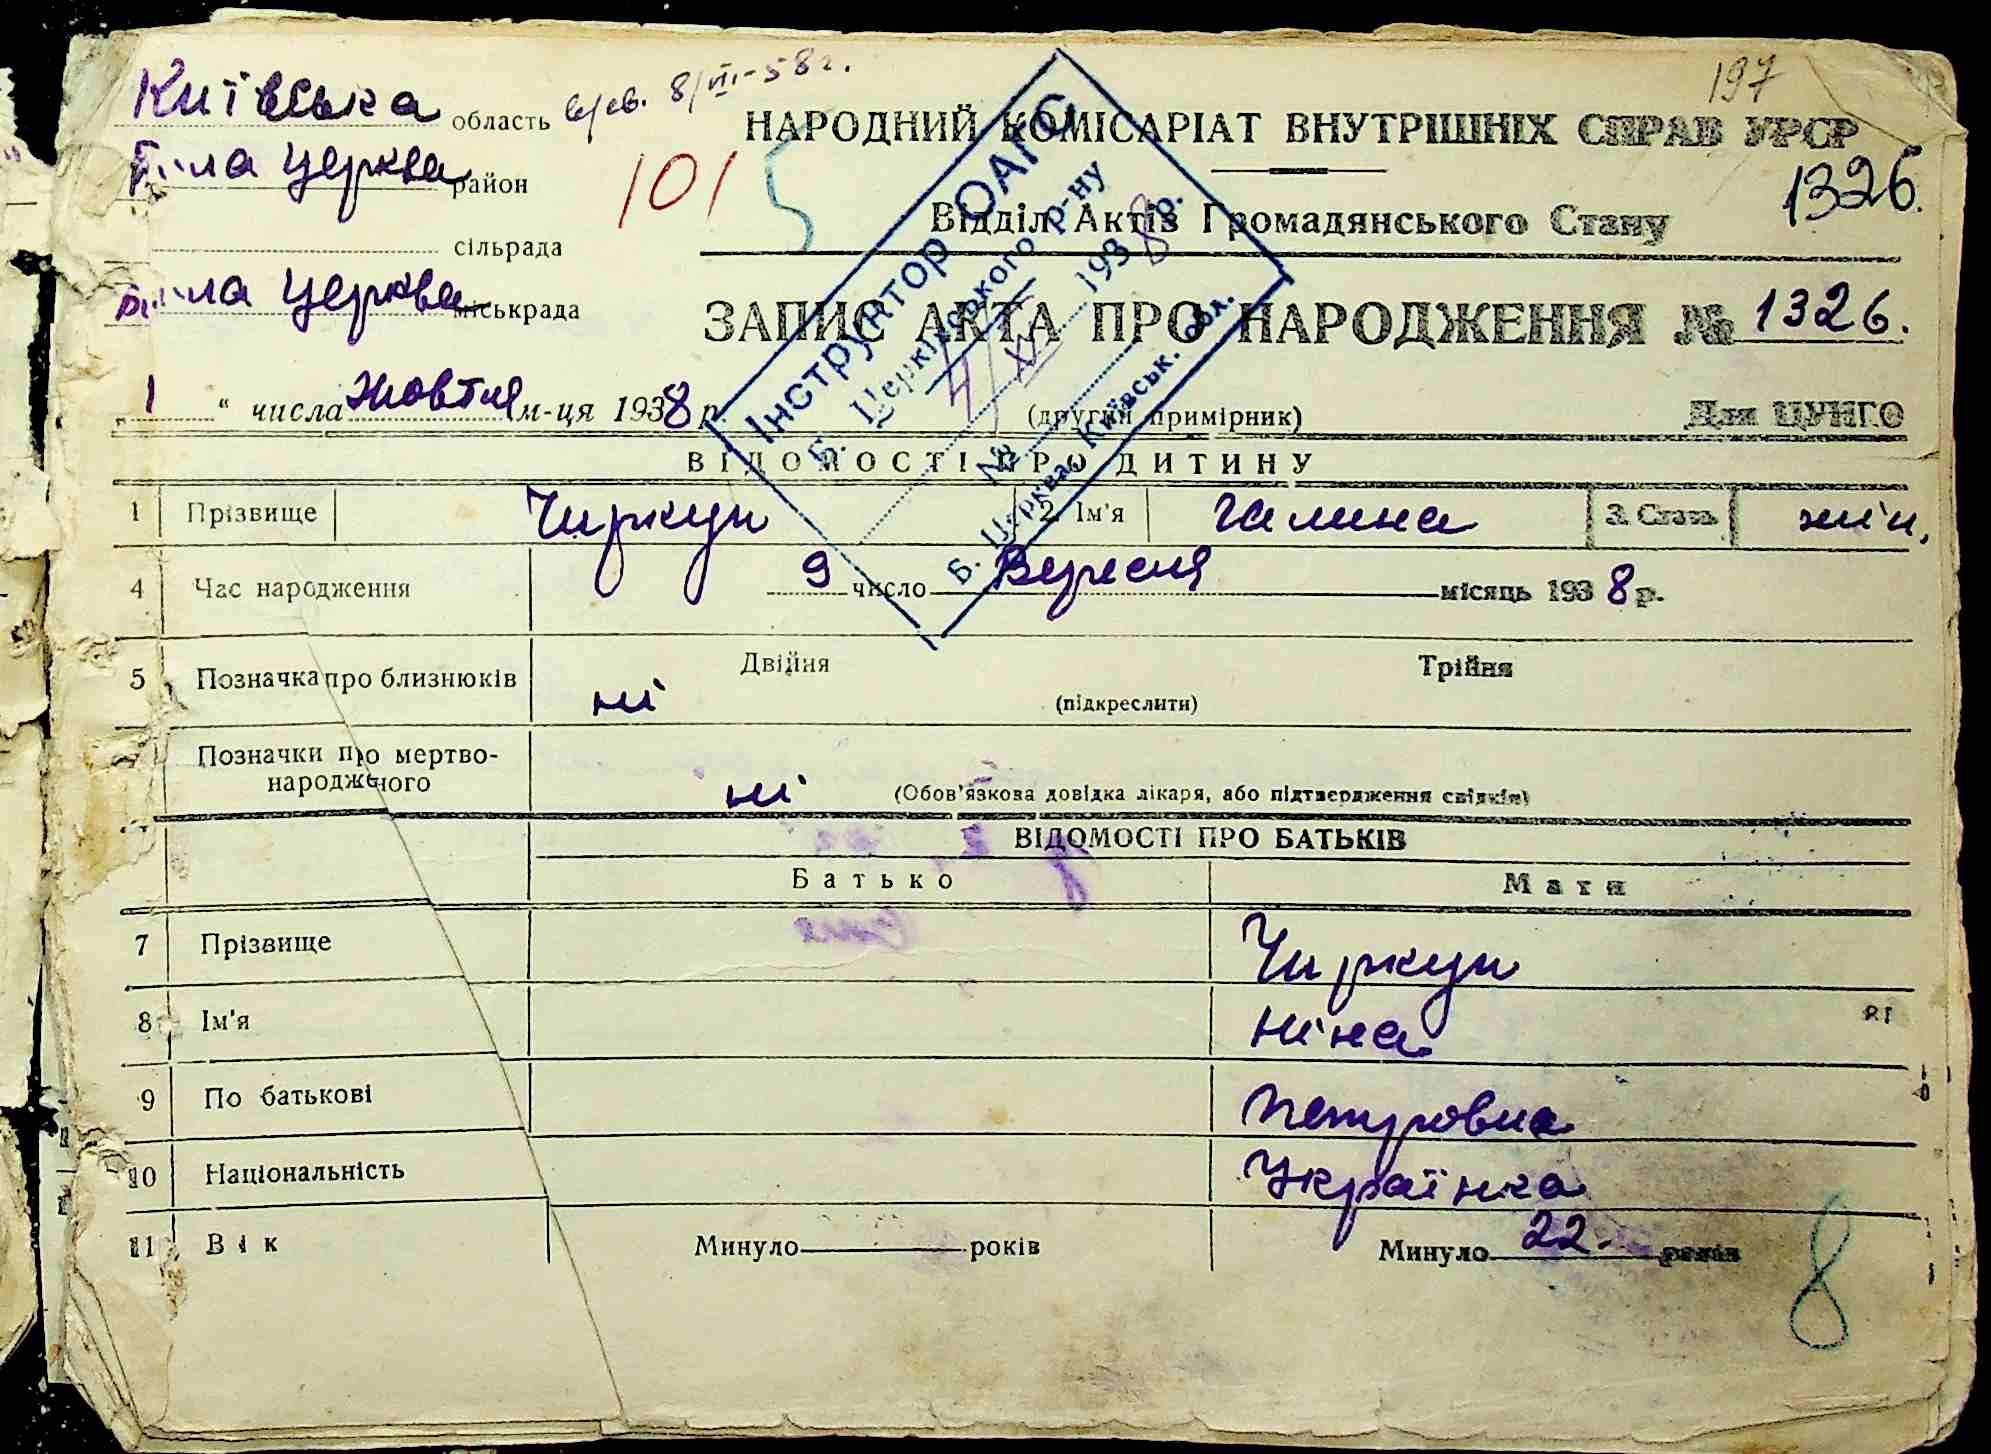 Київська область в/св. 8/VII-58г. 197
НАРОДНИЙ КОМІСАРІАТ ВНУТРІШНІХ СПРАВ УРСР
Біла Церква район 101 1326.
Відділ Актів Громадянського Стану
сільрада
Біла Церква міськрада
ЗАПИС АКТА ПРО НАРОДЖЕННЯ № 1326.
„1“ числа жовтня м-ця 1938 р.
(другий примірник) Для ЦУНГО
Інструктор ОАГС
Б. Церківського р-ну
4/XI 1938 р.
№
Б. Церква, Київськ. обл.
ВІДОМОСТІ ПРО ДИТИНУ
1 Прізвище Чиркун 2. Ім'я Галина 3. Стать жін.
4 Час народження 9 число Вересня місяць 1938 р.
5 Позначка про близнюків ні Двійня Трійня
(підкреслити)
Позначки про мертво-
народженого ні (Обов'язкова довідка лікаря, або підтвердження свідків)
ВІДОМОСТІ ПРО БАТЬКІВ
Батько Мати
7 Прізвище Чиркун
8 Ім'я Ніна
9 По батькові Петровна
10 Національність Українка
11 Вік Минуло років Минуло 22. років
8